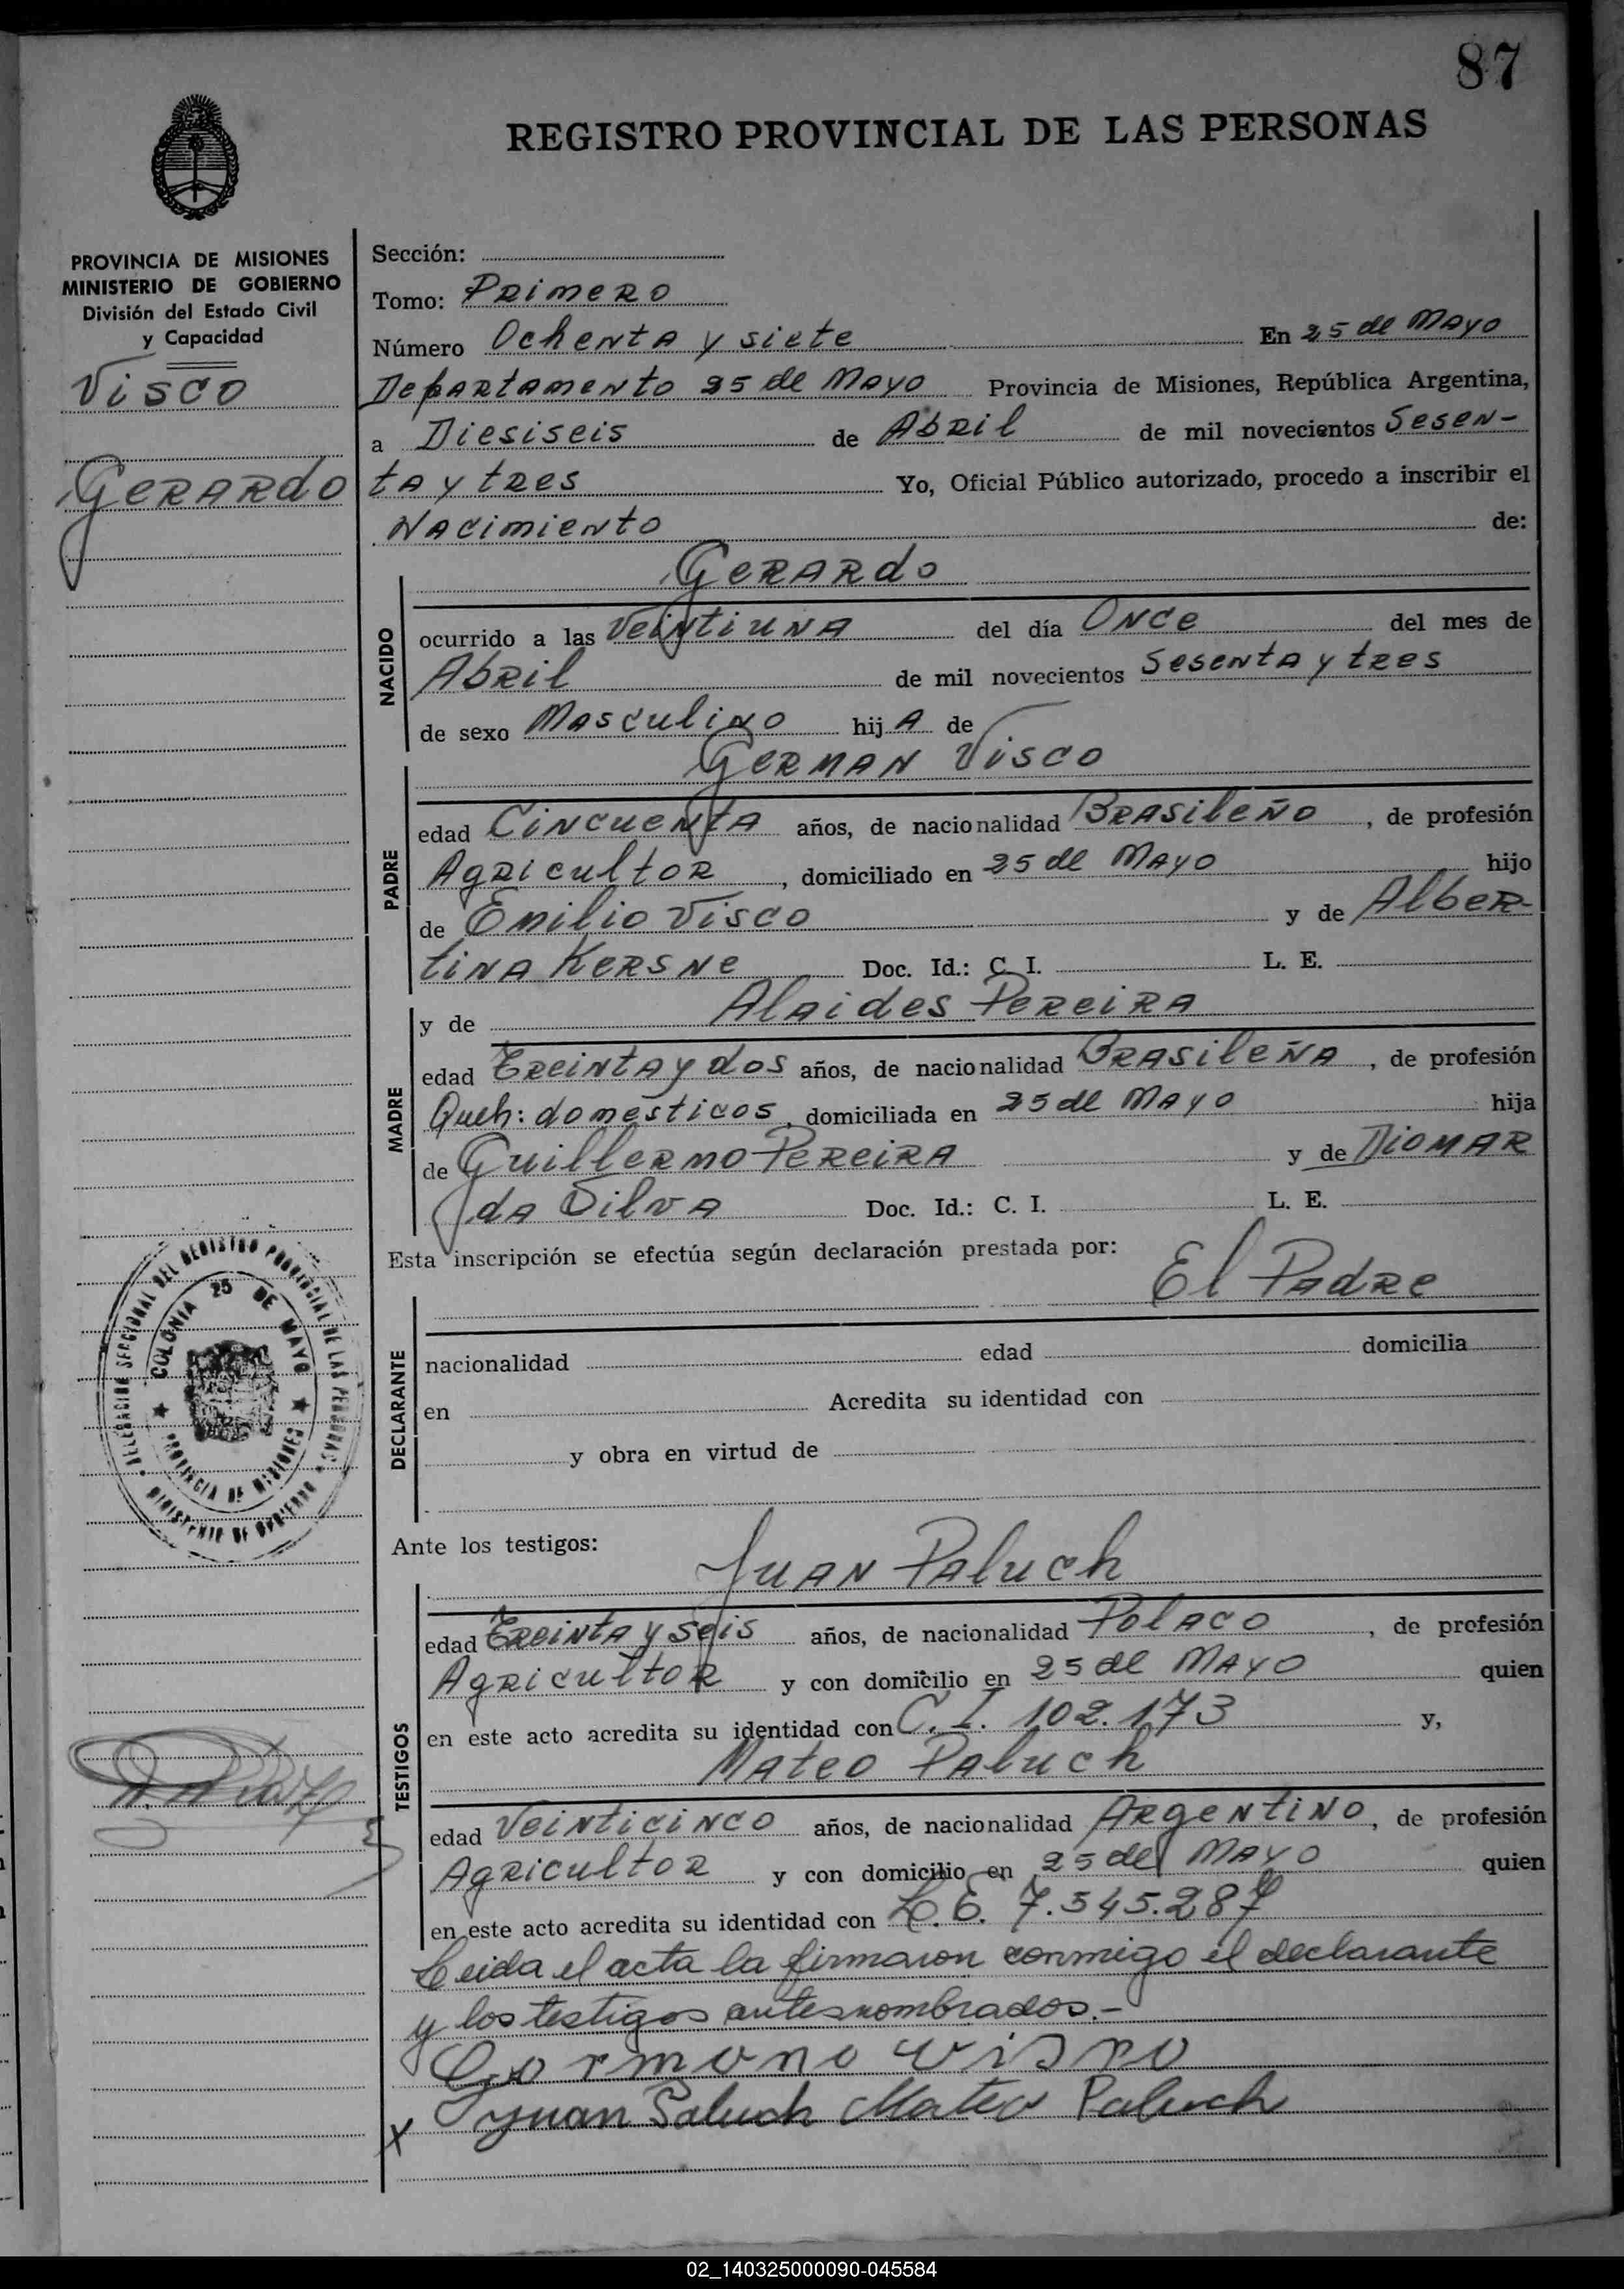 87
REGISTRO PROVINCIAL DE LAS PERSONAS
PROVINCIA DE MISIONES
MINISTERIO DE GOBIERNO
División del Estado Civil
y Capacidad
Visco
Gerardo
Sección:
Tomo: Primero
Número Ochenta y siete En 25 de Mayo
Departamento 25 de Mayo Provincia de Misiones, República Argentina,
a Diesiseis de Abril de mil novecientos Sesen-
ta y tres Yo, Oficial Público autorizado, procedo a inscribir el
Nacimiento de:
Gerardo
NACIDO
ocurrido a las Veintiuna del día Once del mes de
Abril de mil novecientos Sesenta y tres
de sexo Masculino hij A de
German Visco
PADRE
edad Cincuenta años, de nacionalidad Brasileño, de profesión
Agricultor, domiciliado en 25 de Mayo hijo
de Emilio Visco y de Alber-
tina Kersne Doc. Id.: C. I. L. E.
y de Alaides Pereira
MADRE
edad Treinta y dos años, de nacionalidad Brasileña, de profesión
Queh: domésticos, domiciliada en 25 de Mayo hija
de Guillermo Pereira y de Diomar
da Silva Doc. Id.: C. I. L. E.
Esta inscripción se efectúa según declaración prestada por:
El Padre
DECLARANTE
nacionalidad edad domicilia
en Acredita su identidad con
y obra en virtud de
Ante los testigos:
Juan Paluch
TESTIGOS
edad Treinta y seis años, de nacionalidad Polaco, de profesión
Agricultor y con domicilio en 25 de Mayo quien
en este acto acredita su identidad con C. I. 102.173 y,
Mateo Paluch
edad Veinticinco años, de nacionalidad Argentino, de profesión
Agricultor y con domicilio en 25 de Mayo quien
en este acto acredita su identidad con L. E. 7.545.287
Leida el acta la firmaron conmigo el declarante
y los testigos antesnombrados.-
Juan Paluch Mateo Paluch
X
DELEGACION SECCIONAL DEL REGISTRO PROVINCIAL DE LAS PERSONAS
COLONIA 25 DE MAYO
PROVINCIA DE MISIONES
MINISTERIO DE GOBIERNO
02_140325000090-045584